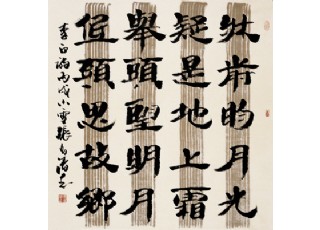 牀前昀月光
疑是地上霜
舉頭望明月
低頭思故鄉
李白詩丙戌小雪